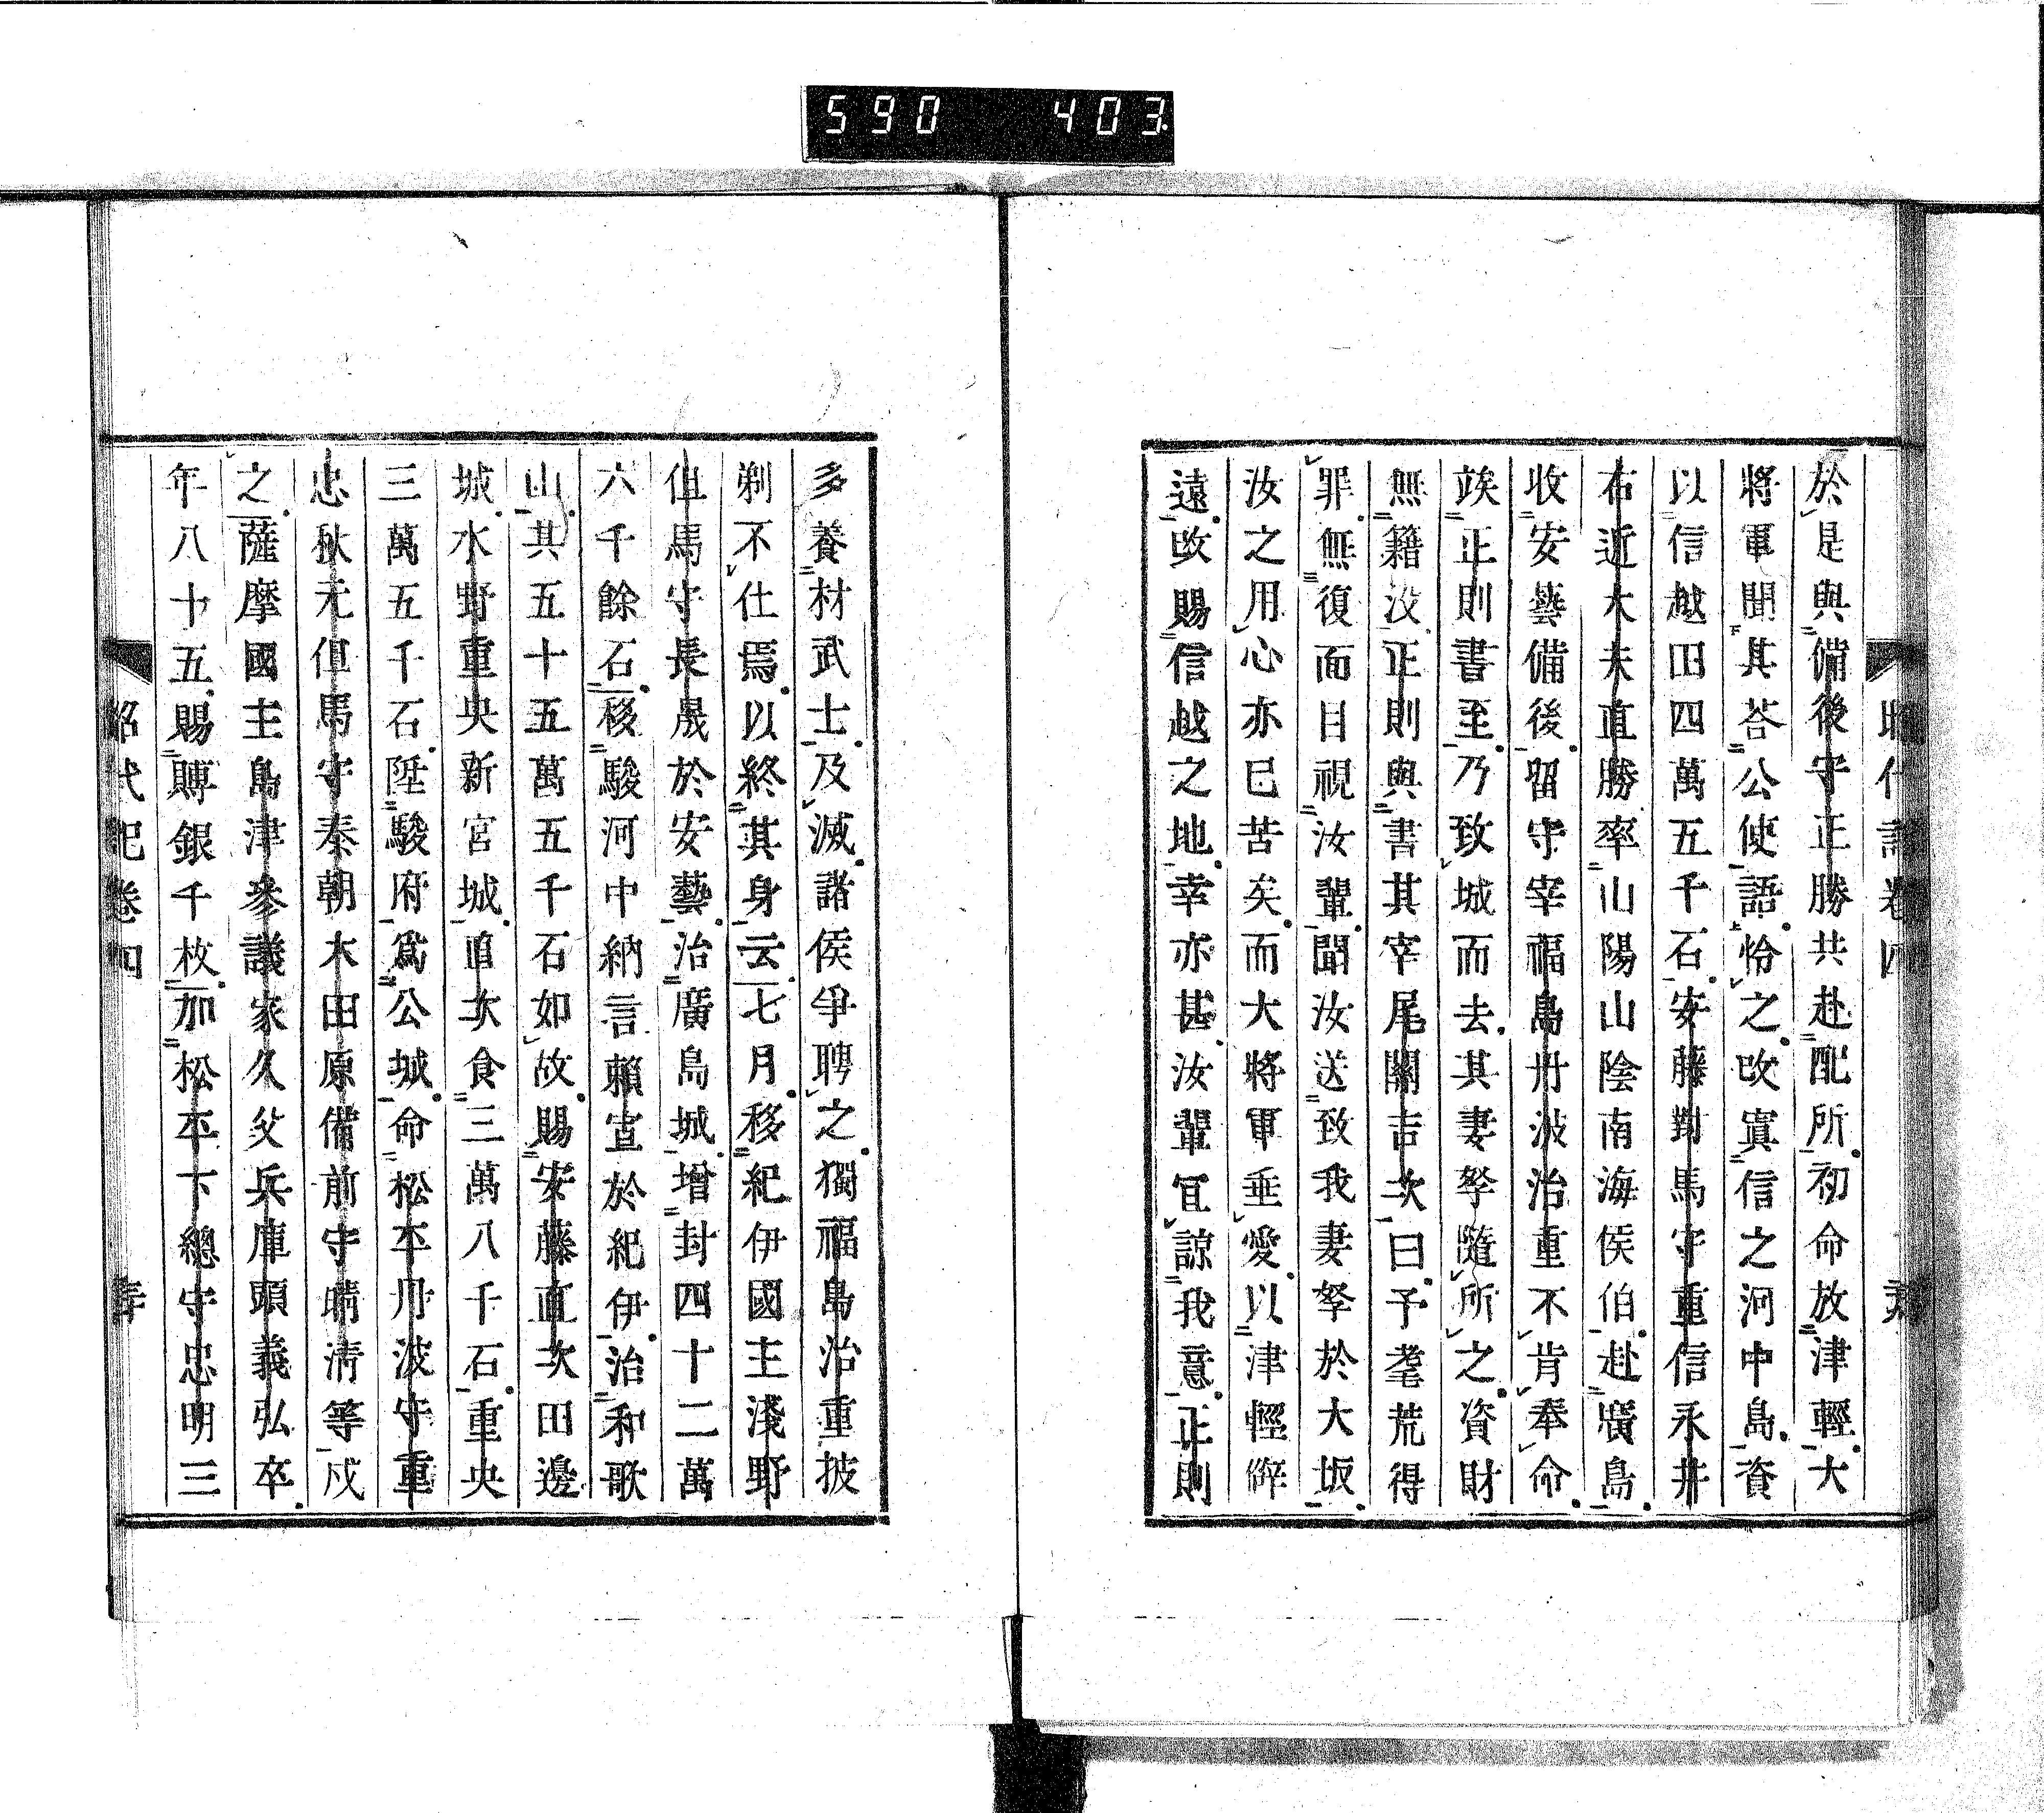 590 403
昭代記卷四
於是與備後守正勝共赴配所初命放津輕大
將軍聞其荅公使語怜之改寘信之河中島資
以信越田四萬五千石安藤對馬守重信永井
右近大夫直勝率山陽山陰南海侯伯赴廣島
收安藝備後留守宰福島丹波治重不肯奉命
竢正則書至乃致城而去其妻孥隨所之資財
無籍沒正則與書其宰尾關吉次曰予耄荒得
罪無復面目視汝輩聞汝送致我妻孥於大坂
汝之用心亦已苦矣而大將軍垂愛以津輕僻
遠改賜信越之地幸亦甚汝輩冝諒我意正則
多養材武士及滅諸侯爭聘之獨福島治重披
剃不仕焉以終其身云七月移紀伊國主淺野
但馬守長晟於安藝治廣島城增封四十二萬
六千餘石移駿河中納言賴宣於紀伊治和歌
山其五十五萬五千石如故賜安藤直次田邊
城水野重央新宮城直次食三萬八千石重央
三萬五千石陞駿府爲公城命松平丹波守重
忠秋元但馬守泰朝大田原備前守晴清等戍
之薩摩國主島津參議家久父兵庫頭義弘卒
年八十五賜賻銀千枚加松平下總守忠明三
昭代記卷四